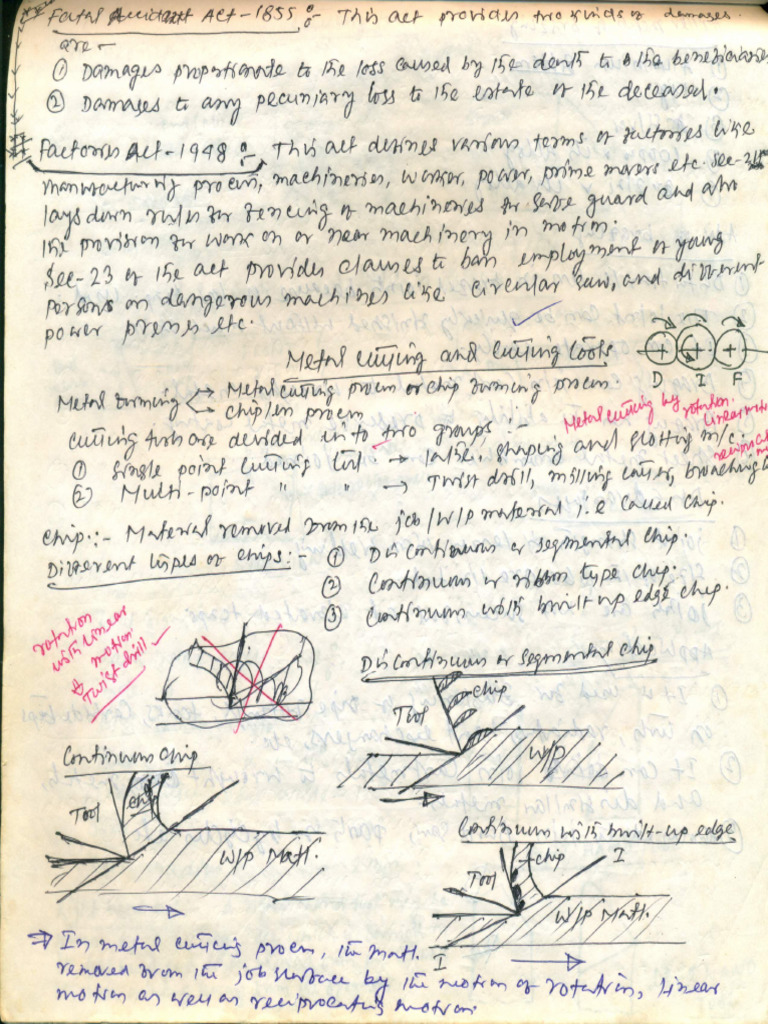 Fatal Accidant Act - 1855 :- This act provides two kinds of damages
are -
① Damages proportionate to the loss caused by the death to the beneficiaries
② Damages to any pecuniary loss to the estate of the deceased.
# Factories Act - 1948 :- This act defines various terms of factories like
manufacturing process, machineries, worker, power, prime movers etc. Sec-21
lays down rules for fencing of machineries for safe guard and also
the provision for work on or near machinery in motion.
Sec-23 of the act provides clauses to ban employment of young
persons on dangerous machines like circular saw, and different
power presses etc.
Metal cutting and cutting tools
D I F
Metal forming → Metal cutting process or chip forming process
→ chipless process
Metal cutting by rotation.
linear motion
cutting tools are devided in to two groups :-
① Single point cutting tool → lathe, shaping and slotting m/c.
② Multi-point " " → Twist drill, milling cutter, broaching
chip :- Material removed from the job/W/p material i.e called chip.
Different types of chips :- ① Discontinuous or segmental chip.
② Continuous or ribbon type chip.
③ Continuous with built up edge chip.
rotation
with linear
motion
Twist drill
Discontinuous or segmental chip
Tool
chip
W/P
Continuous chip
Tool
chip
W/P Matl.
Continuous with built-up edge
Tool
chip
I
W/P Matl.
I
⇒ In metal cutting process, the matl.
removed from the job surface by the motion of rotation, linear
motion as well as reciprocating motion.